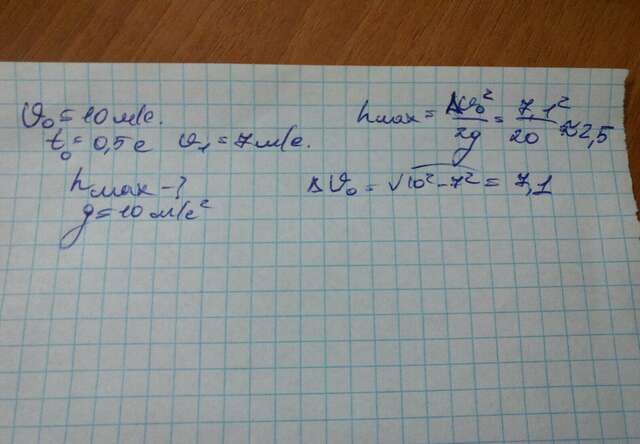 υ₀ = 10 м/с.
t₀ = 0,5 с υ₁ = 7 м/с.
hмах - ?
g = 10 м/с²
hмах = Δυ₀²/2g = 7,1²/20 ≈ 2,5
Δυ₀ = √10² - 7² = 7,1